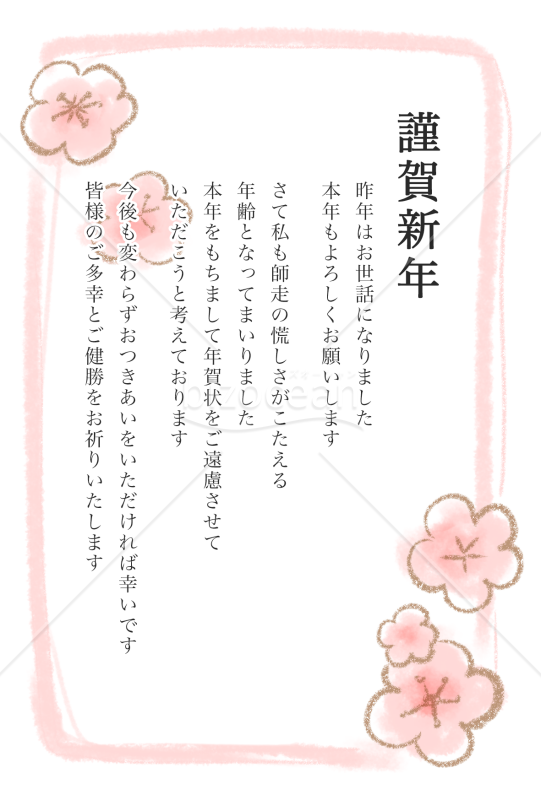 謹賀新年
昨年はお世話になりました
本年もよろしくお願いします
さて私も師走の慌しさがこたえる
年齢となってまいりました
本年をもちまして年賀状をご遠慮させて
いただこうと考えております
今後も変わらずおつきあいをいただければ幸いです
皆様のご多幸とご健勝をお祈りいたします
bizocean